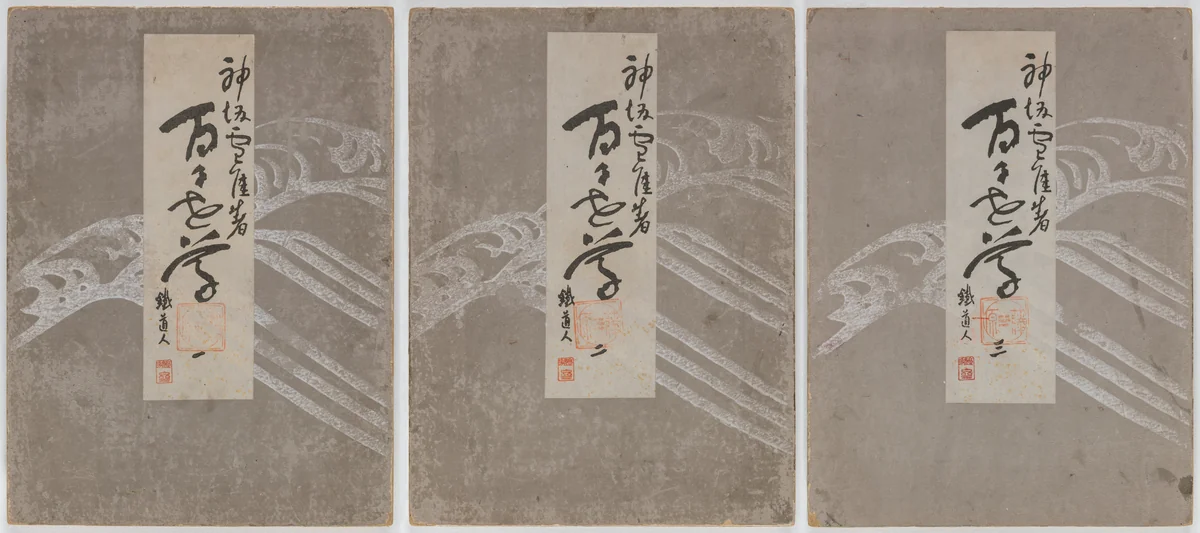 神坂雪佳著
百々世草
鐵道人
一
神坂雪佳著
百々世草
鐵道人
二
神坂雪佳著
百々世草
鐵道人
三